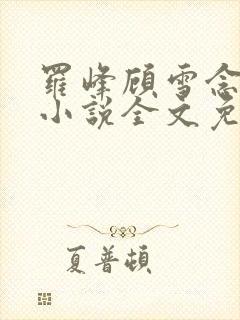 羅峰顾雪念
小説全文免
夏普頓